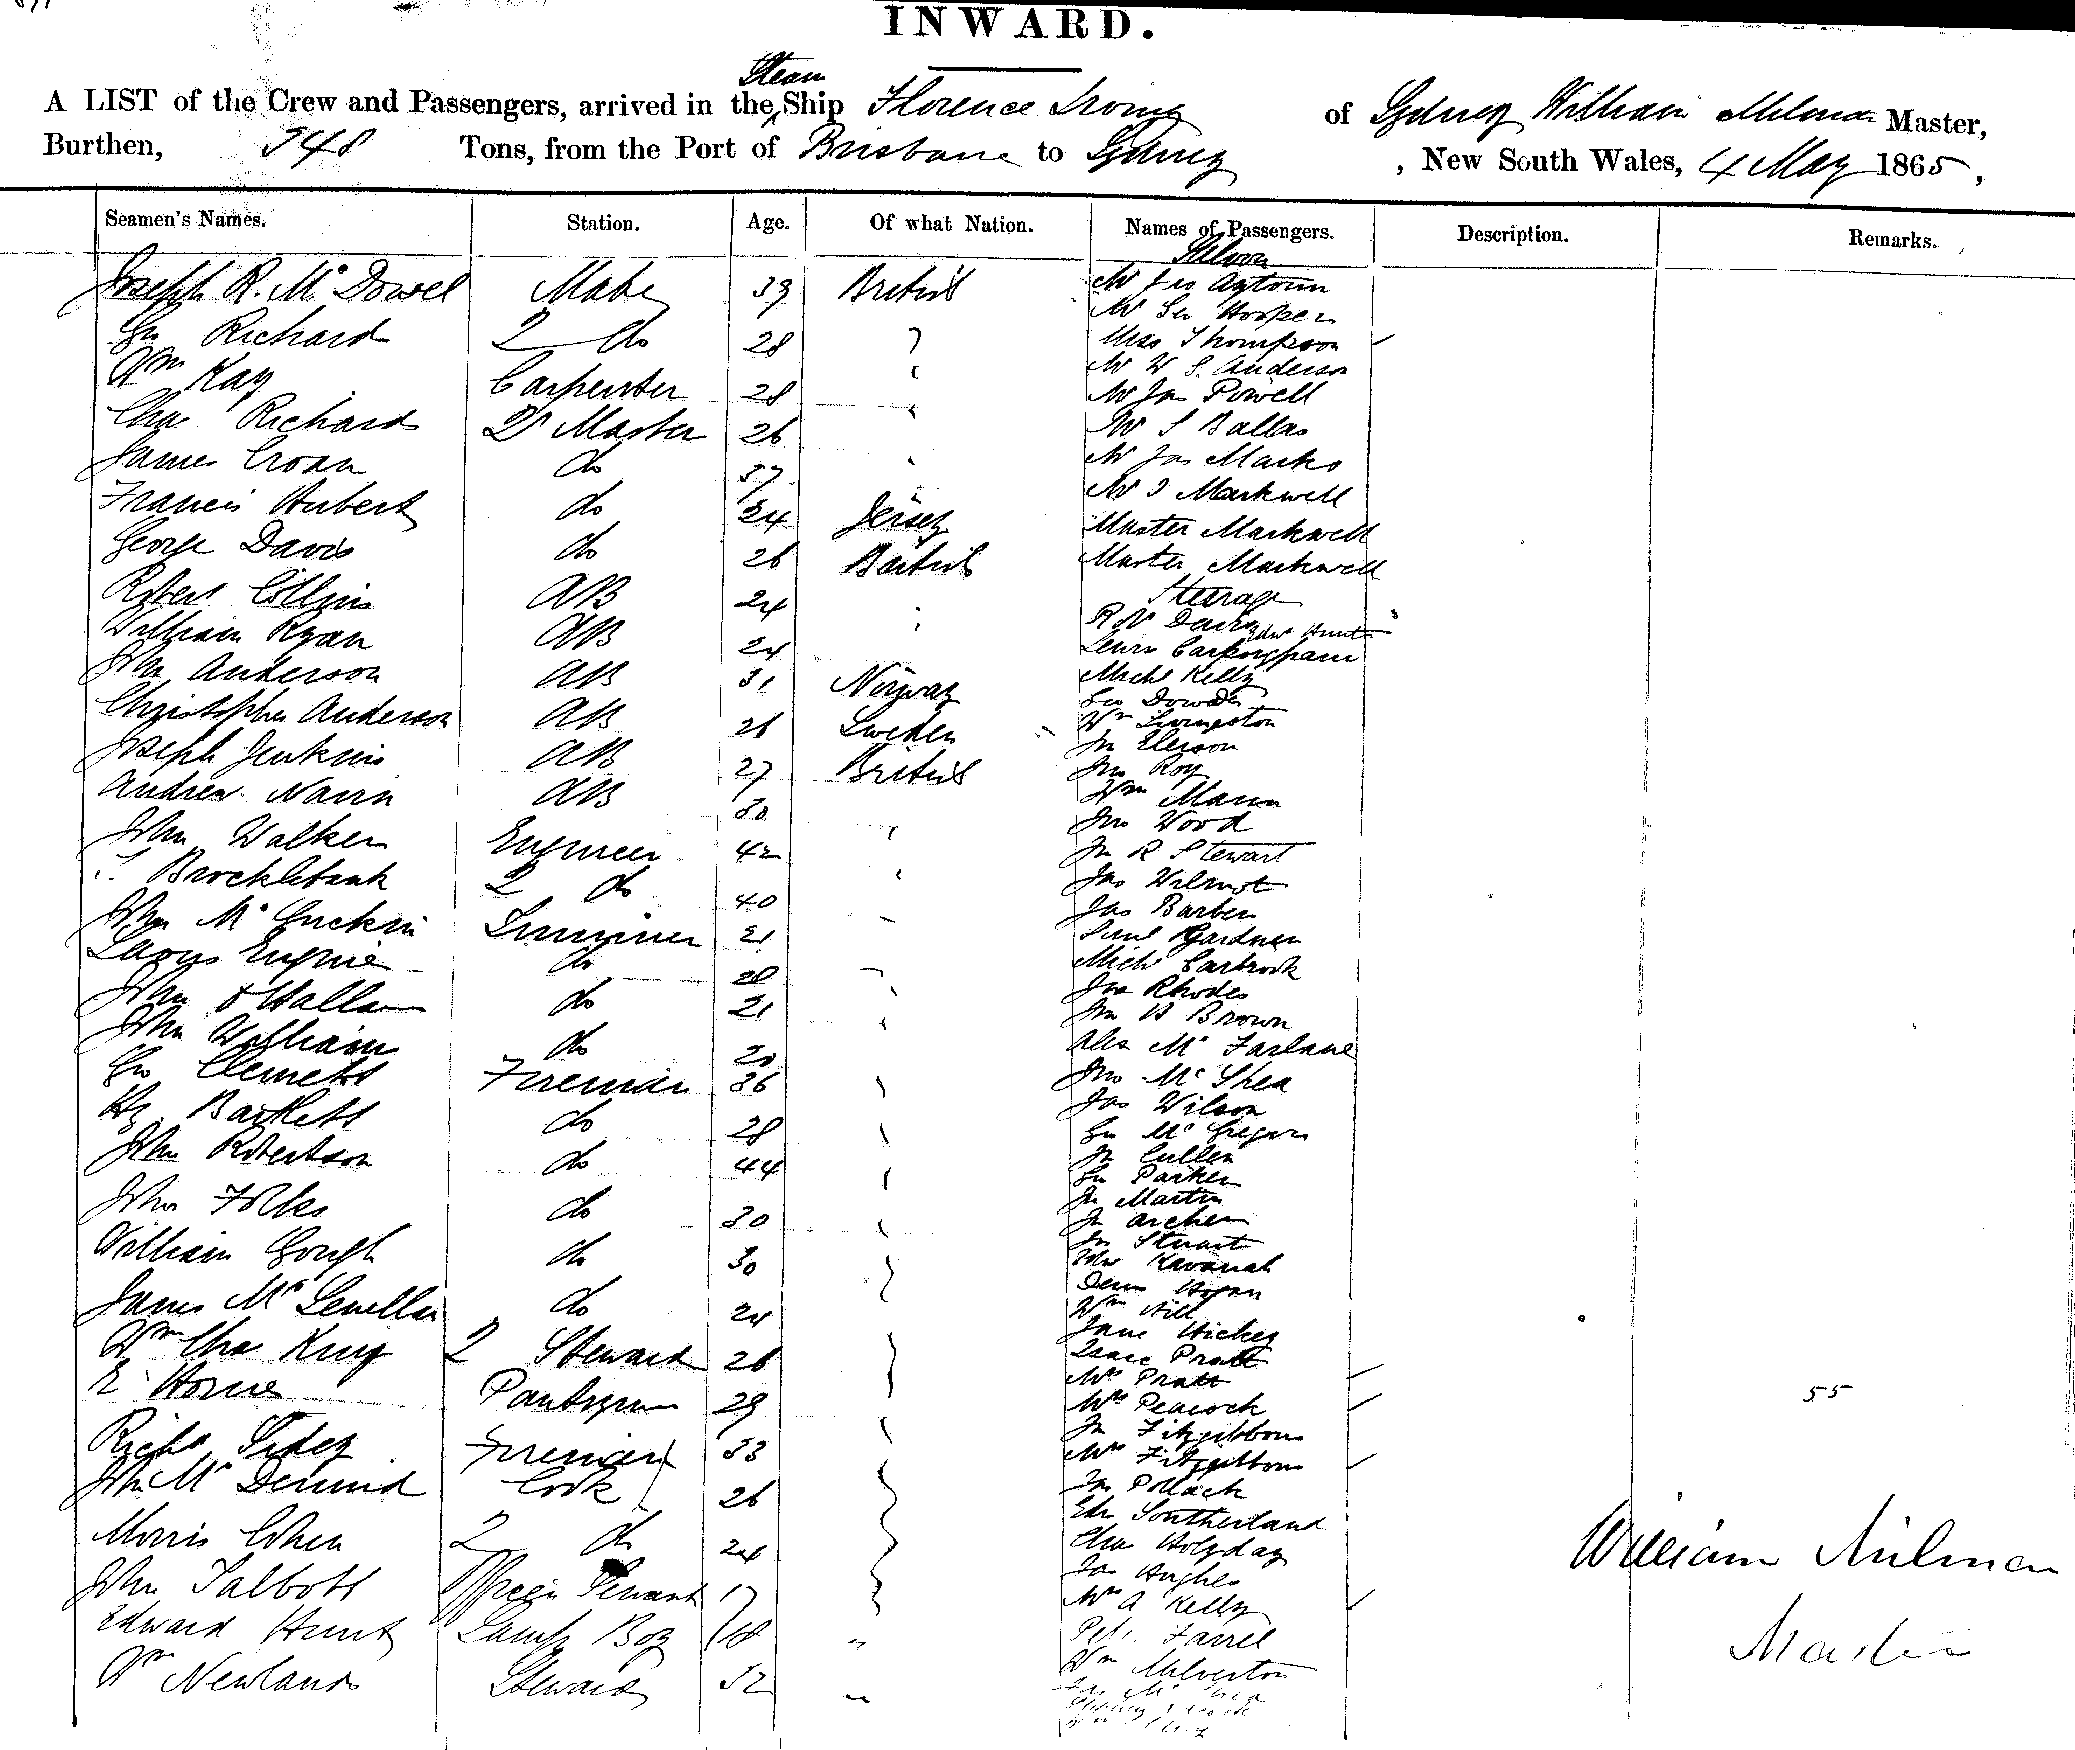 INWARD.
A LIST of the Crew and Passengers, arrived in the Steam Ship Florence Irving of Sydney William Milman Master,
Burthen, 348 Tons, from the Port of Brisbane to Sydney, New South Wales, 4 May 1865,
Seamen's Names. Station. Age. Of what Nation. Names of Passengers. Description. Remarks.
Saloon
Joseph R. Mc Dowel Mate 39 British
Geo Richard 2 do 28 "
Wm Kay Carpenter 28 "
Chas Richards Qr Master 26 "
James Croan do 37 "
Francis Hubert do 24 Jersey
George Davis do 26 British
Robert Collins AB 24 "
William Ryan AB 24
John Anderson AB 31 Norway
Christopher Anderson AB 26 Sweden
Joseph Jenkins AB 27 British
Andrew Nairn AB 30
John Walker Engineer 42 "
T. Brocklebank 2 do 40 "
John Mc Guckin Trimmer 21
Eugine do 20
John O Hallan do 21
John William do 20
Geo Clemett Fireman 36
Hy. Bartlett do 28
John Robertson do 44
John Folks do 30
William Gough do 30
James Mc Lenellan do 24
Wm Chas King 2 Steward 26
E. Horne Pantryman 29
Richd Sidey Fireman 33
John Mc Dermid Cook 26
Morris Cohen 2 do 24
John Talbott Officers Servant 17
Edward Hunt Lamp Boy 18 "
Wm Newlands Steward 52 "
Mr Jno Aytoun
Mr Geo Hooper
Miss Thompson
Mr W S. Anderson
Mr Jas Powell
Mr S Ballas
Mr Jas Marks
Mr I Markwell
Master Markwell
Master Markwell
Steerage
R W Dairy Edw Hunt
Lewis
Michl Kelly
Geo Dowde
Wm Livingston
Jn Elerson
Jno Roy
Wm Mann
Jno Wood
Jn R Stewart
Jas Wilmot
Jas Barber
Saml Gardner
Michl Carbrook
Jno Rhodes
Jn B Brown
Alex Mc Farlane
Jno Mc Shea
Jas Wilson
Geo Mc Gregor
Jn Cullen
Geo Parker
Jn Martin
Jn Archer
Jn Stuart
Edw Kavanah
Denis Hogan
Wm Hill
Jane Hickey
Isaac Pratt
Mrs Pratt
Mrs Peacock
Jn Fitzgibbon
Mrs Fitzgibbon
Jn Pollack
Edw Southerland
Chas Holyday
Jas Hughes
Mrs A Kelly
Petr Farrel
Wm Milverton
55
William Milman
Master